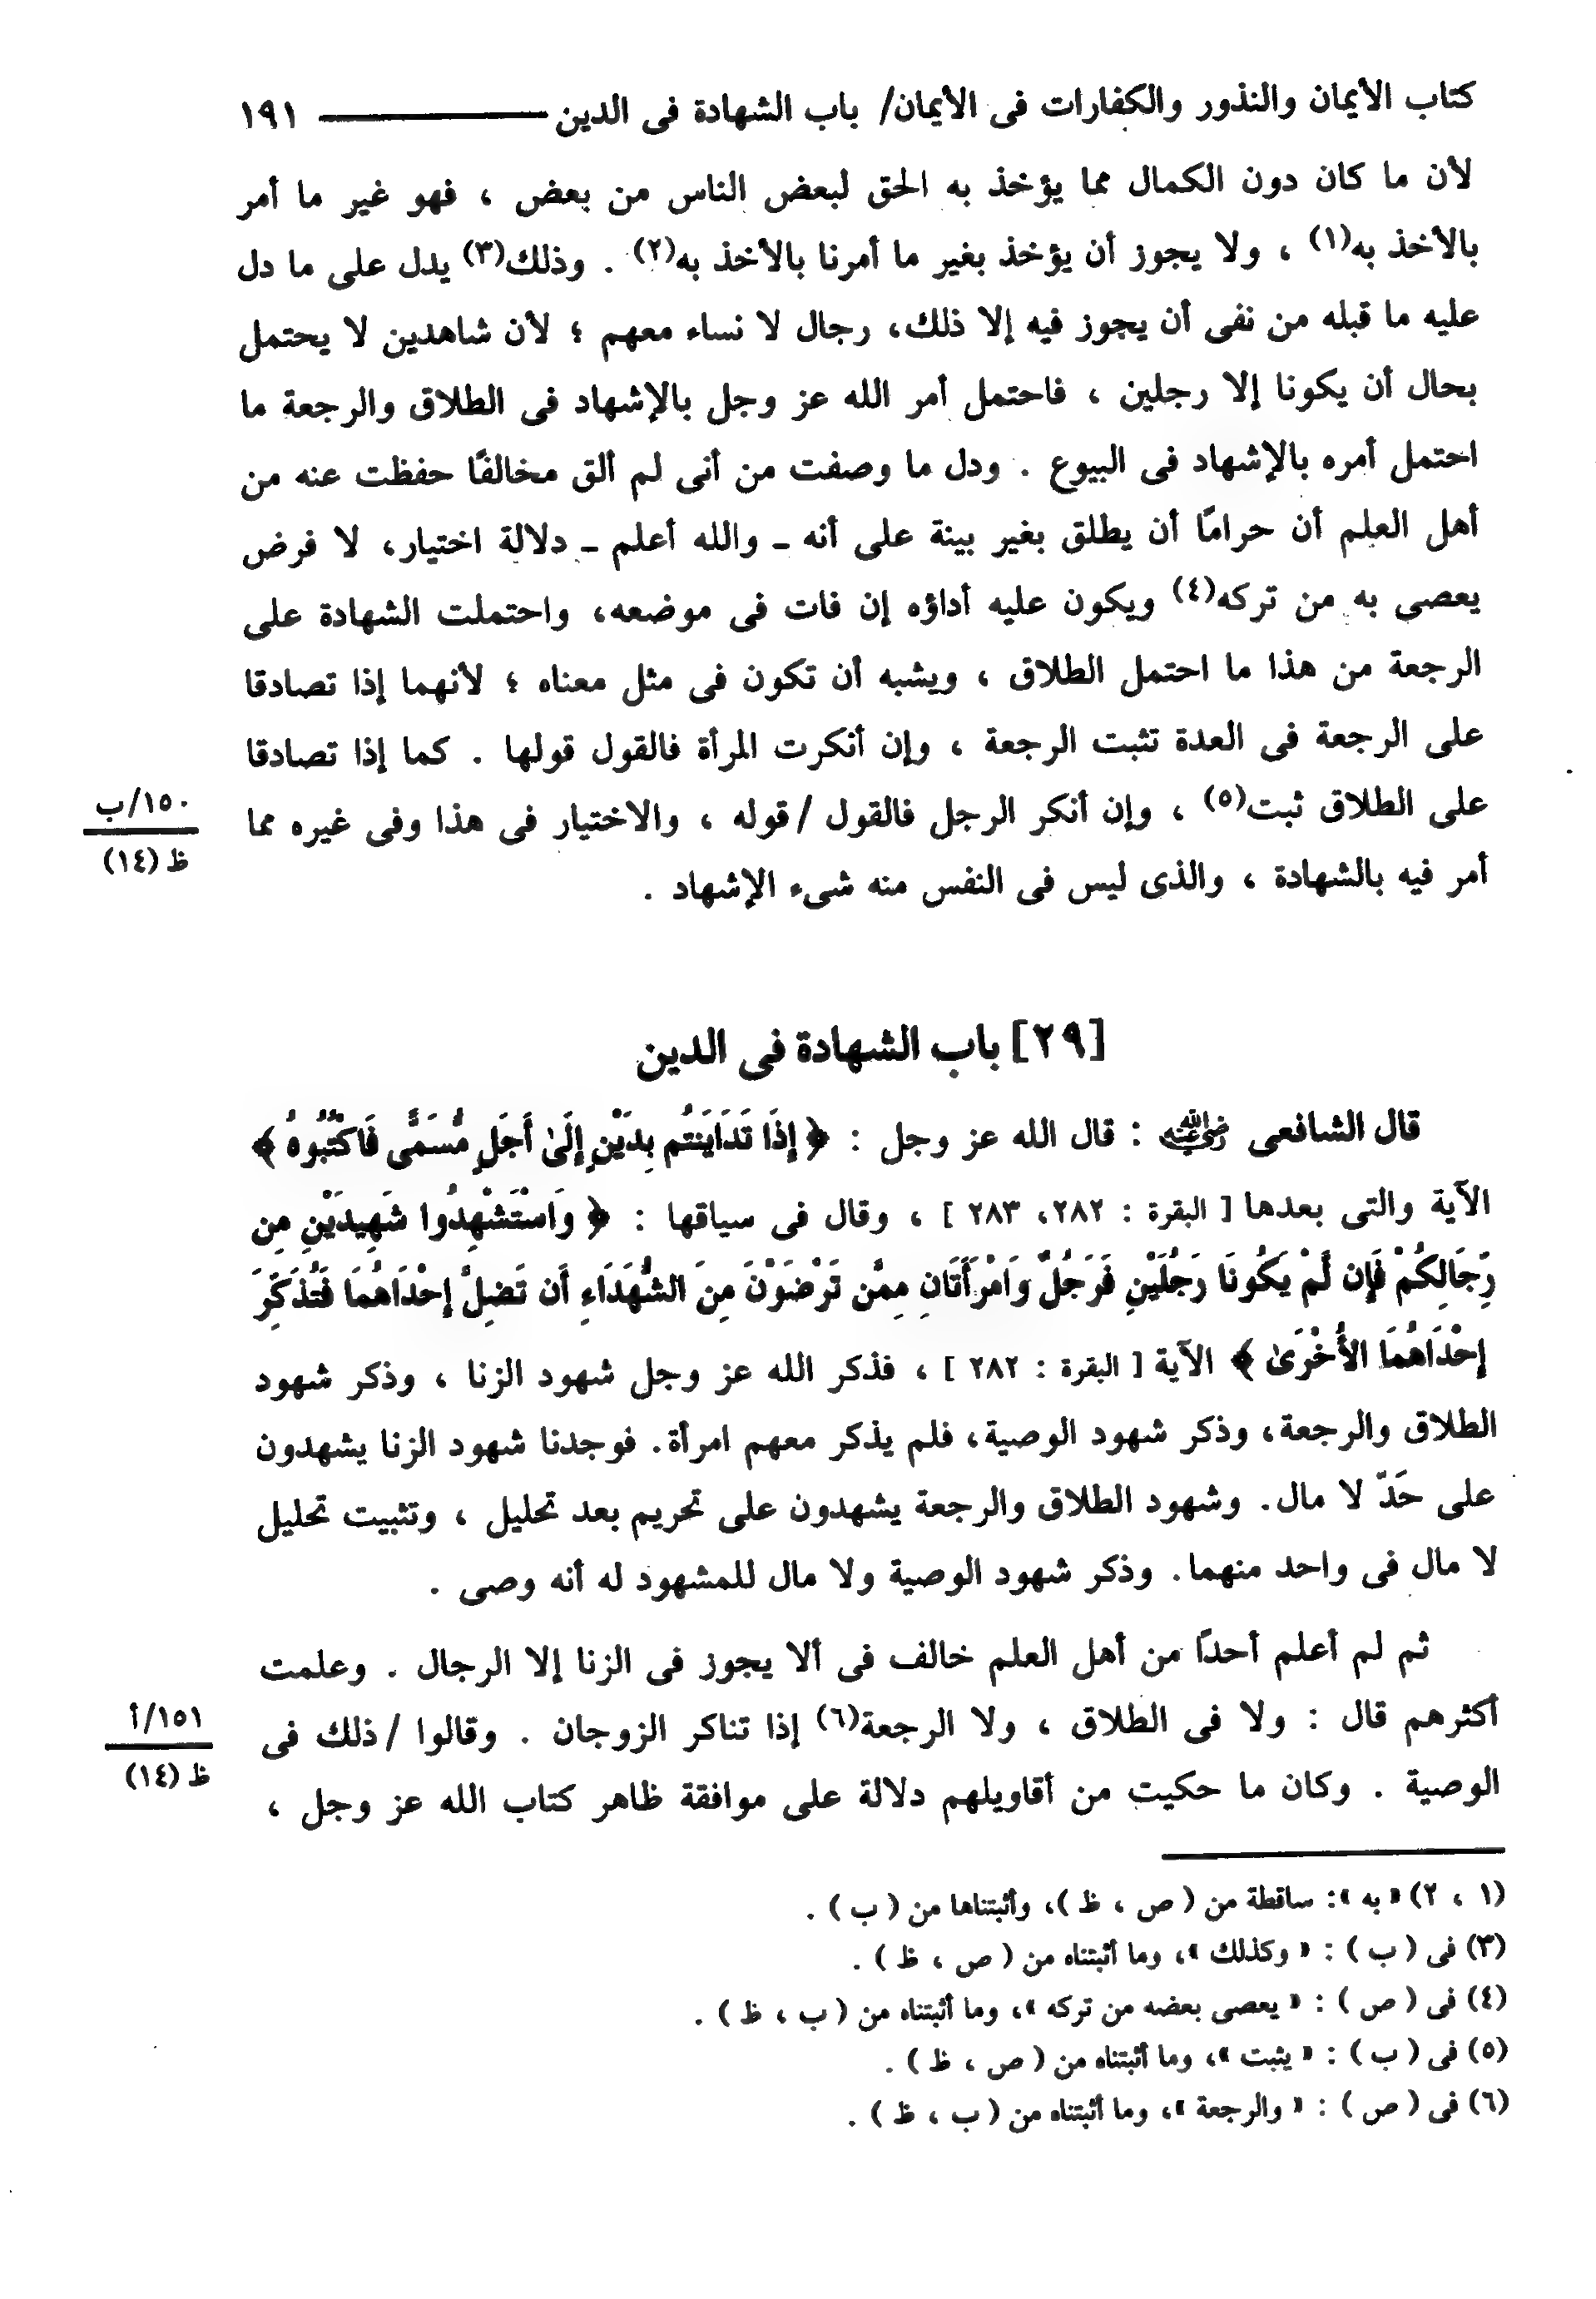 كتاب الأيمان والنذور والكفارات فى الأيمان/ باب الشهادة فى الدين ــــــــــــ ١٩١
لأن ما كان دون الكمال مما يؤخذ به الحق لبعض الناس من بعض ، فهو غير ما أمر
بالأخذ به(١) ، ولا يجوز أن يؤخذ بغير ما أمرنا بالأخذ به(٢) . وذلك(٣) يدل على ما دل
عليه ما قبله من نفى أن يجوز فيه إلا ذلك، رجال لا نساء معهم ؛ لأن شاهدين لا يحتمل
بحال أن يكونا إلا رجلين ، فاحتمل أمر الله عز وجل بالإشهاد فى الطلاق والرجعة ما
احتمل أمره بالإشهاد فى البيوع . ودل ما وصفت من أنى لم ألق مخالفًا حفظت عنه من
أهل العلم أن حرامًا أن يطلق بغير بينة على أنه ـ والله أعلم ـ دلالة اختيار، لا فرض
يعصى به من تركه(٤) ويكون عليه أداؤه إن فات فى موضعه، واحتملت الشهادة على
الرجعة من هذا ما احتمل الطلاق ، ويشبه أن تكون فى مثل معناه ؛ لأنهما إذا تصادقا
على الرجعة فى العدة تثبت الرجعة ، وإن أنكرت المرأة فالقول قولها . كما إذا تصادقا
على الطلاق ثبت(٥) ، وإن أنكر الرجل فالقول /قوله ، والاختيار فى هذا وفى غيره مما
١٥٠/ب
ظ (١٤)
أمر فيه بالشهادة ، والذى ليس فى النفس منه شىء الإشهاد .
[٢٩] باب الشهادة فى الدين
قال الشافعى رضي الله عنه : قال الله عز وجل : ﴿ إِذَا تَدَايَنتُم بِدَيْنٍ إِلَىٰ أَجَلٍ مُّسَمًّى فَاكْتُبُوهُ ﴾
الآية والتى بعدها [ البقرة : ٢٨٢، ٢٨٣ ] ، وقال فى سياقها : ﴿ وَاسْتَشْهِدُوا شَهِيدَيْنِ مِن
رِّجَالِكُمْ فَإِن لَّمْ يَكُونَا رَجُلَيْنِ فَرَجُلٌ وَامْرَأَتَانِ مِمَّن تَرْضَوْنَ مِنَ الشُّهَدَاءِ أَن تَضِلَّ إِحْدَاهُمَا فَتُذَكِّرَ
إِحْدَاهُمَا الأُخْرَىٰ ﴾ الآية [ البقرة : ٢٨٢ ] ، فذكر الله عز وجل شهود الزنا ، وذكر شهود
الطلاق والرجعة، وذكر شهود الوصية، فلم يذكر معهم امرأة. فوجدنا شهود الزنا يشهدون
على حَدّ لا مال. وشهود الطلاق والرجعة يشهدون على تحريم بعد تحليل ، وتثبيت تحليل
لا مال فى واحد منهما. وذكر شهود الوصية ولا مال للمشهود له أنه وصى .
ثم لم أعلم أحدًا من أهل العلم خالف فى ألا يجوز فى الزنا إلا الرجال . وعلمت
أكثرهم قال : ولا فى الطلاق ، ولا الرجعة(٦) إذا تناكر الزوجان . وقالوا /ذلك فى
١٥١/أ
ظ (١٤)
الوصية . وكان ما حكيت من أقاويلهم دلالة على موافقة ظاهر كتاب الله عز وجل ،
(١ ، ٢) « به »: ساقطة من ( ص ، ظ )، وأثبتناها من ( ب ) .
(٣) فى ( ب ) : « وكذلك »، وما أثبتناه من ( ص ، ظ ) .
(٤) فى ( ص ) : « يعصى بعضه من تركه »، وما أثبتناه من ( ب ، ظ ) .
(٥) فى ( ب ) : « يثبت »، وما أثبتناه من ( ص ، ظ ) .
(٦) فى ( ص ) : « والرجعة »، وما أثبتناه من ( ب ، ظ ) .